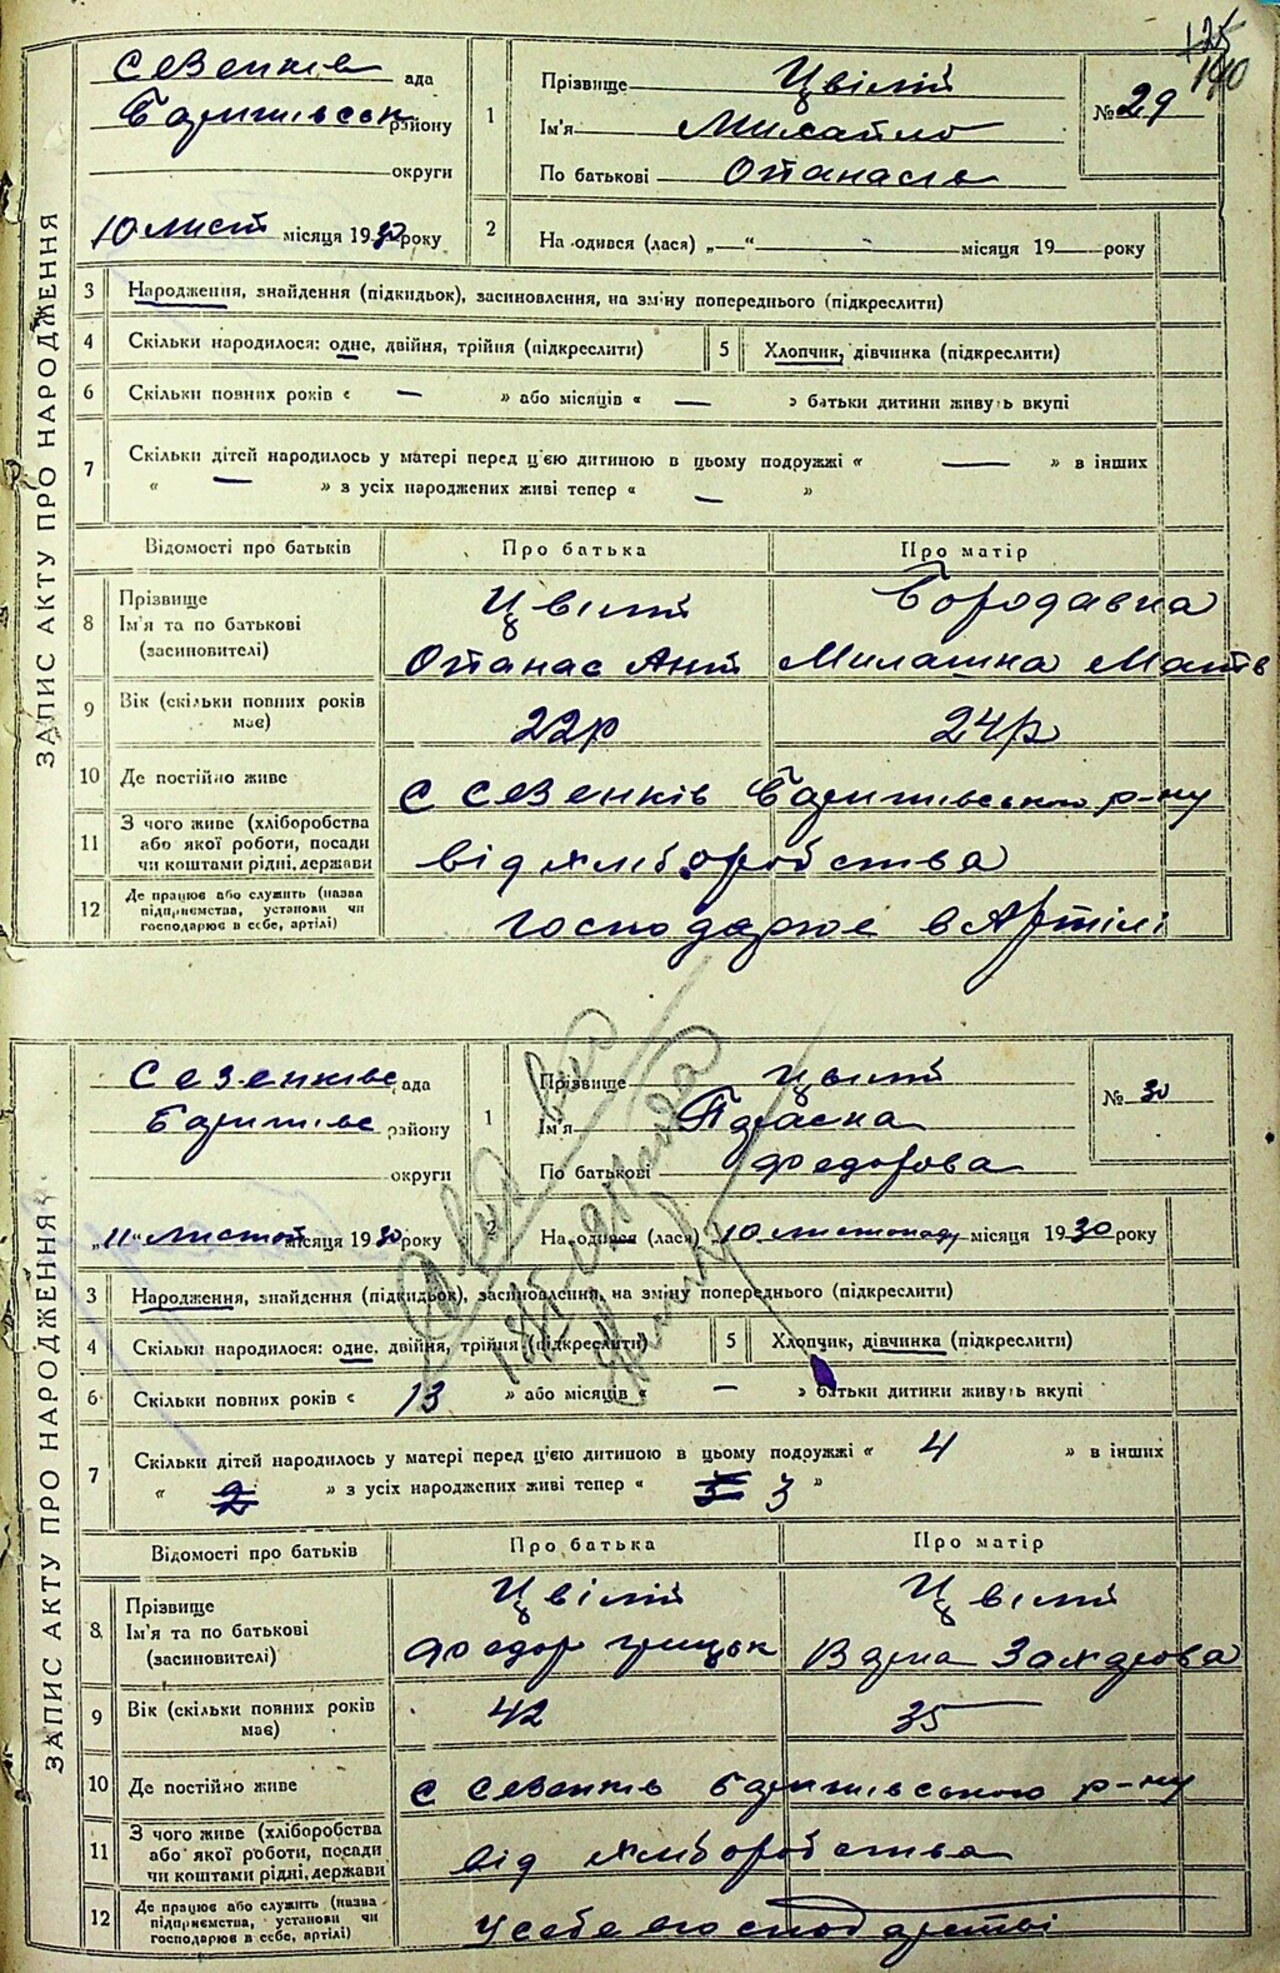 125
140
ЗАПИС АКТУ ПРО НАРОДЖЕННЯ
Сезенків ада
Баришівськ району
округи
10 лист місяця 1930 року
1
Прізвище Цвілій
Ім'я Михайло
По батькові Опанасів
№ 29
2 На одився (лася) „—“ — місяця 19— року
3 Народження, знайдення (підкидьок), засиновлення, на зміну попереднього (підкреслити)
4 Скільки народилося: одне, двійня, трійня (підкреслити) 5 Хлопчик, дівчинка (підкреслити)
6 Скільки повних років « — » або місяців « — » батьки дитини живуть вкупі
7 Скільки дітей народилось у матері перед цією дитиною в цьому подружжі « — » в інших
« — » з усіх народжених живі тепер « — »
Відомості про батьків Про батька Про матір
8 Прізвище Цвілій Бородавка
Ім'я та по батькові
(засиновителі) Опанас Ант Милашка Матв
9 Вік (скільки повних років
має) 22р 24р
10 Де постійно живе с Сезенків Баришівського р-ну
11 З чого живе (хліборобства
або якої роботи, посади
чи коштами рідні, держави від хліборобства
12 Де працює або служить (назва
підприємства, установи чи
господарює в себе, артілі) господарює в Артілі
ЗАПИС АКТУ ПРО НАРОДЖЕННЯ
Сезенківс ада
Баришівс району
округи
„11“ листоп місяця 1930 року
1
Прізвище Цвілій
Ім'я Параска
По батькові Федорова
№ 30
2 На одився (лася) „10 листопаду місяця 1930 року
3 Народження, знайдення (підкидьок), засиновлення, на зміну попереднього (підкреслити)
4 Скільки народилося: одне, двійня, трійня (підкреслити) 5 Хлопчик, дівчинка (підкреслити)
6 Скільки повних років « 13 » або місяців « — » батьки дитини живуть вкупі
7 Скільки дітей народилось у матері перед цією дитиною в цьому подружжі « 4 » в інших
« 2 » з усіх народжених живі тепер « 3 »
Відомості про батьків Про батька Про матір
8 Прізвище Цвілій Цвілій
Ім'я та по батькові
(засиновителі) Федор Грицьк Варка Захарова
9 Вік (скільки повних років
має) 42 35
10 Де постійно живе с Сезенків Баришівського р-ну
11 З чого живе (хліборобства
або якої роботи, посади
чи коштами рідні, держави від хліборобства
12 Де працює або служить (назва
підприємства, установи чи
господарює в себе, артілі) у себе в господарстві